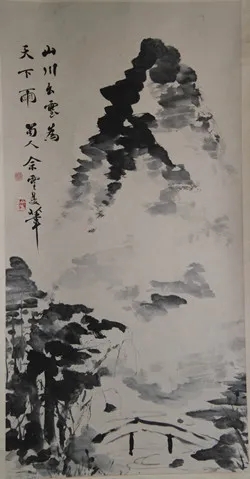 山川出雲為
天下雨 蜀人余雪曼筆